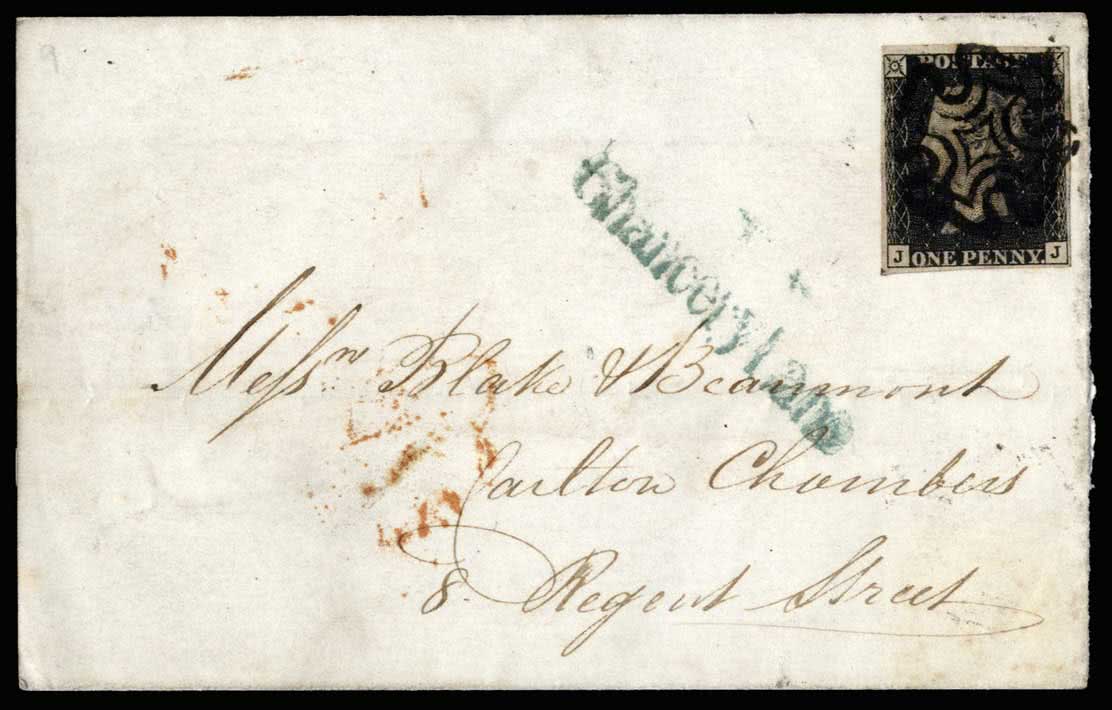 9
POSTAGE
J ONE PENNY. J
Chancery Lane
Messrs Blake & Beaumont
Carlton Chambers
8. Regent Street